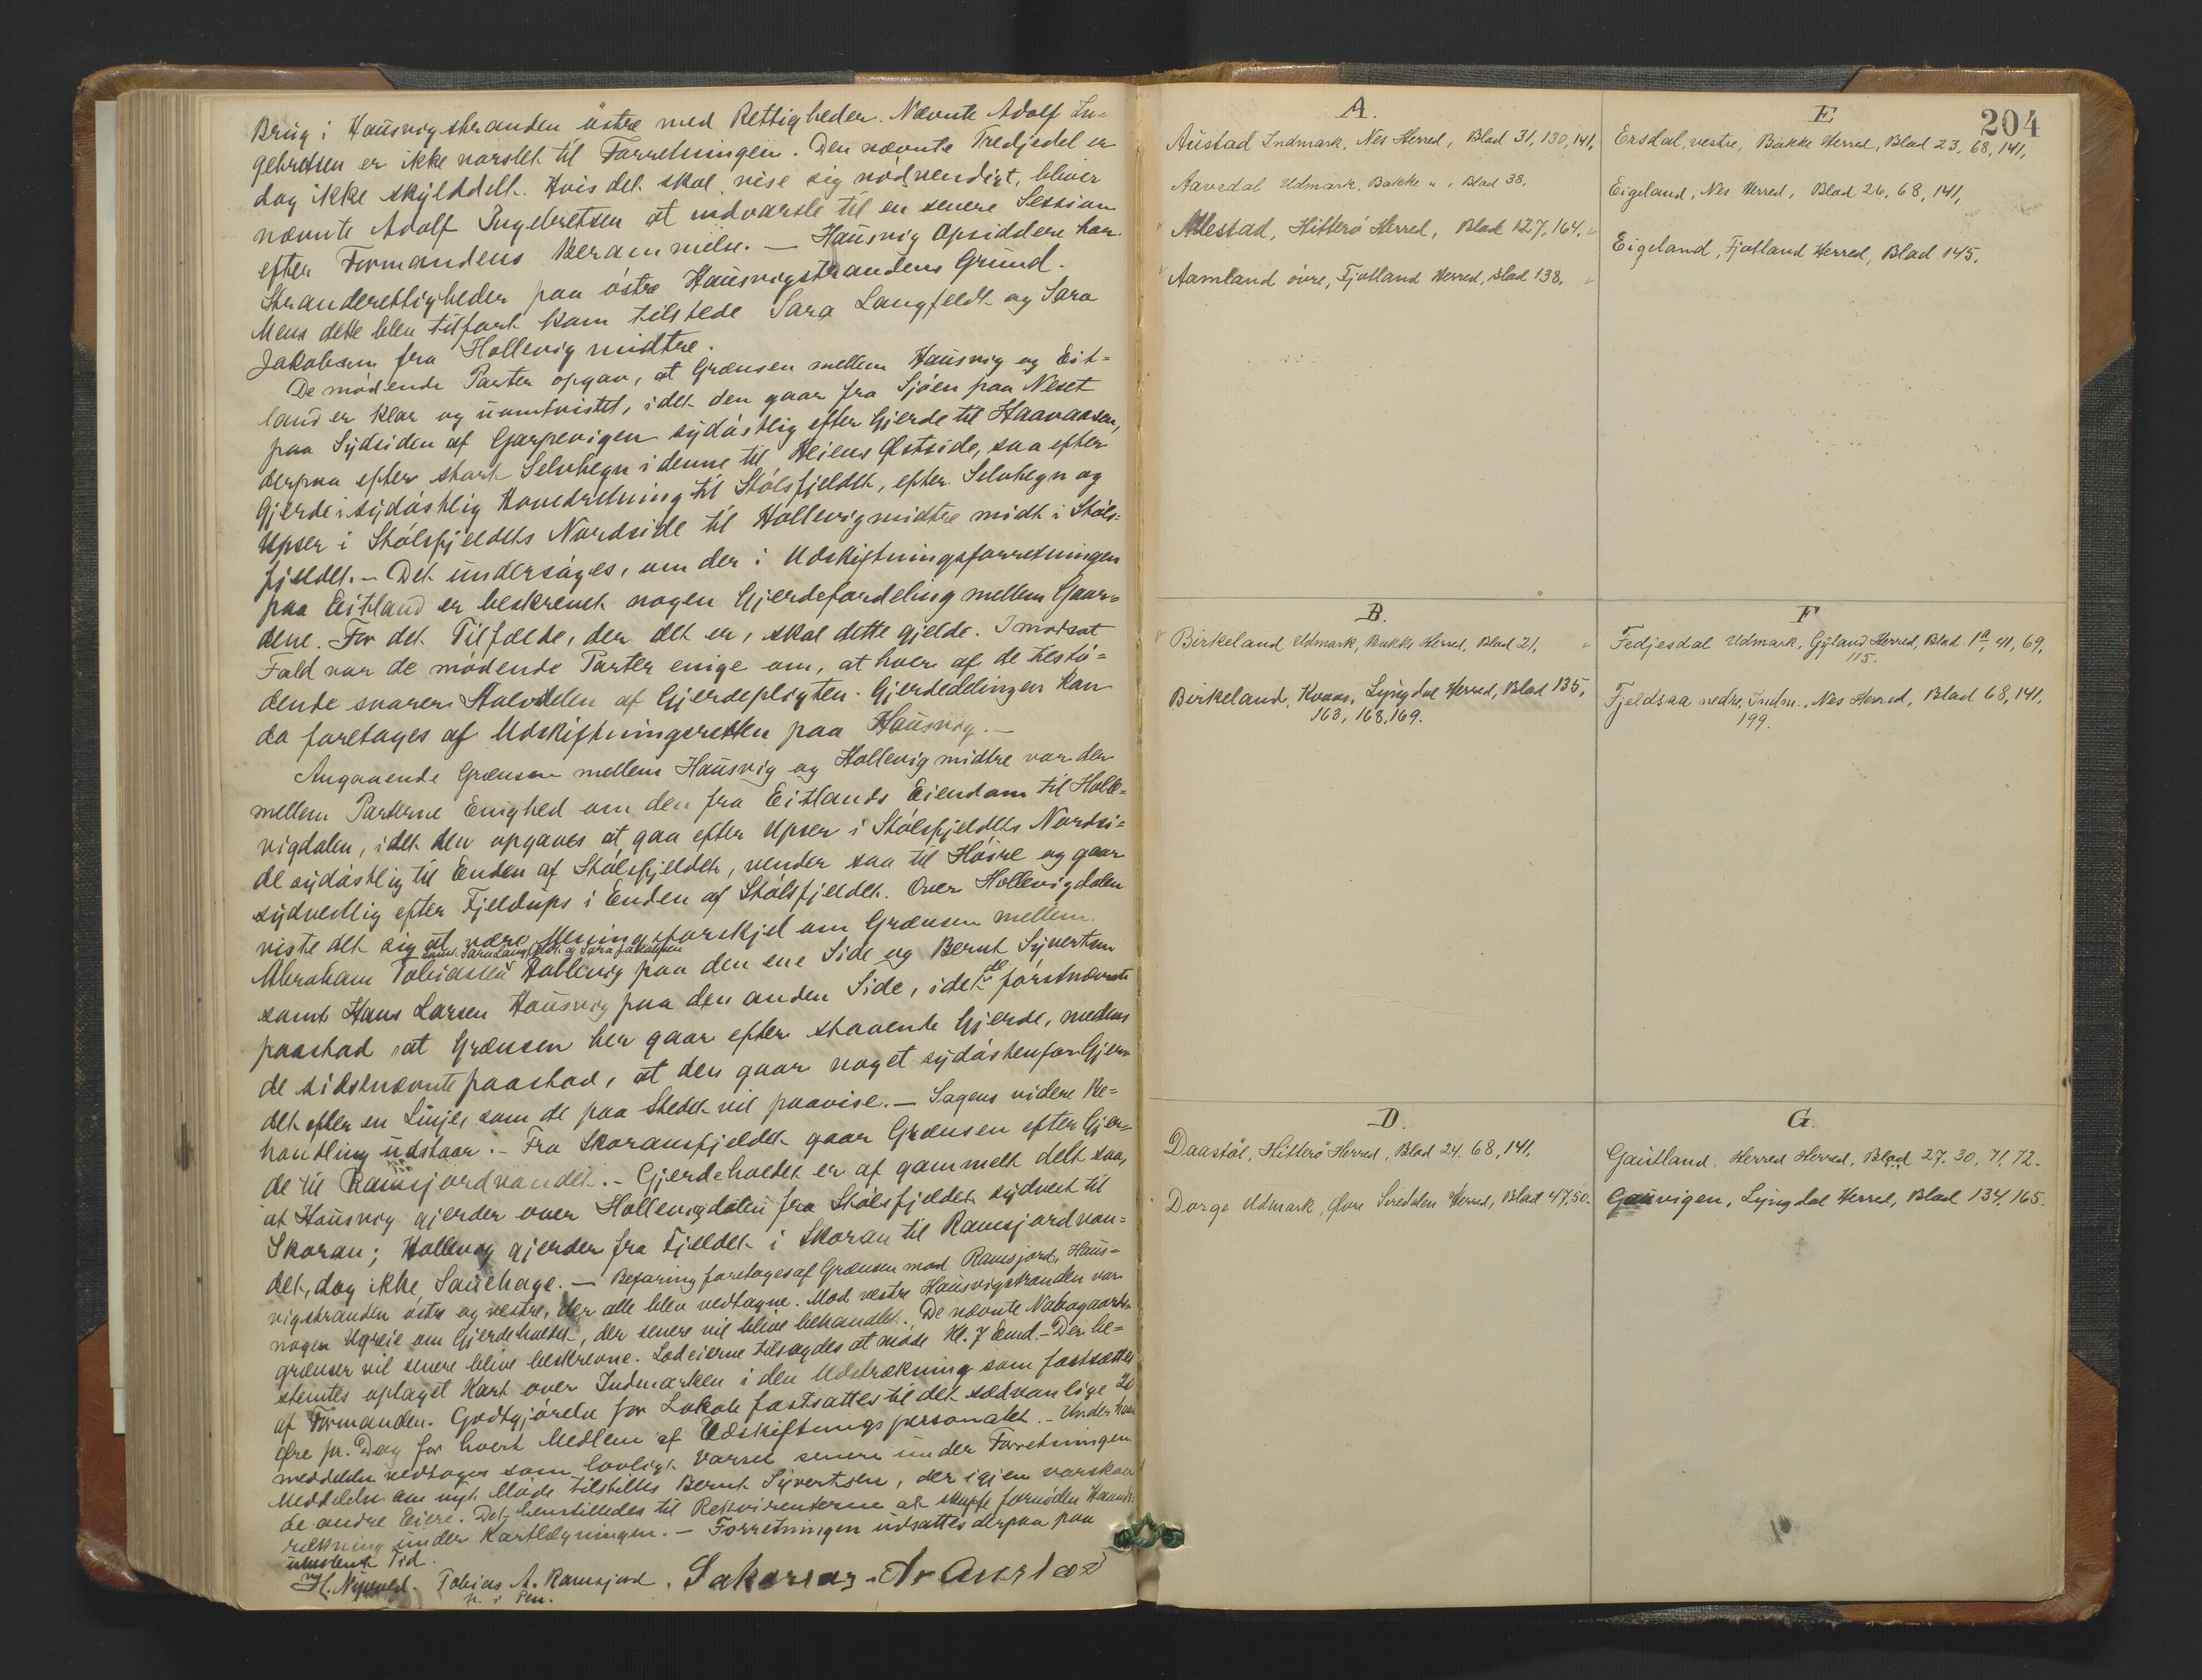 Brug i Hausvigstranden östre med Rettigheder. Nævnte Adolf In-
gebretsen er ikke varslet til Forretningen. Den nævnte Tredjedel er
dog ikke skylddelt. Hvis det skal vise sig nödvendigt, bliver
nævnte Adolf Ingebretsen at indvarsle til en senere Session
efter Formandens Berammelse. — Hausvig Opsiddere har
Stranderettigheder paa östre Hausvigstrandens Grund.
Mens dette blev tilfört kom tilstede Sara Langfeldt og Sara
Jakobsen fra Hollevig midtre.
De mödende Parter opgav, at Grænsen mellem Hausvig og Eit-
land er klar og uomtvistet, idet den gaar fra Sjöen paa Neset
paa Sydsiden af Garpevigen sydöstlig efter Gjerde til Haavaasen,
derpaa efter stort Selvhegn i denne til Heiens Östside, saa efter
Gjerde i sydöstlig Hovedretning til Stölsfjeldet, efter Selvhegn og
Upser i Stölsfjeldets Nordside til Hollevig midtre midt i Stöls-
fjeldet. — Det undersöges, om der i Udskiftningsforretningen
paa Eitland er beskrevet nogen Gjerdefordeling mellem Gaar-
dene. For det Tilfælde, der det er, skal dette gjelde. I modsat
Fald var de mödende Parter enige om, at hver af de tilstö-
dende svarer Halvdelen af Gjerdepligten. Gjerdedelingen kan
da foretages af Udskiftningsretten paa Hausvig. —
Angaaende Grænsen mellem Hausvig og Hollevig midtre var der
mellem Parterne Enighed om den fra Eitlands Eiendom til Holle-
vigdalen, idet den opgaves at gaa efter Upser i Stölsfjeldets Nordsi-
de sydöstlig til Enden af Stölsfjeldet, vender saa til Höire og gaar
sydvestlig efter Fjeldups i Enden af Stölsfjeldet. Over Hollevigdalen
viste det sig at være Meningsforskjel om Grænsen mellem
samt Sara Langfeldt og Sara Jakobsen
Abraham Tobiassen Hollevig paa den ene Side og Bernt Syvertsen
samt Hans Larsen Hausvig paa den anden Side, idet de förstnævnte
paastod at Grænsen her gaar efter staaende Gjerde, medens
de sidstnævnte paastod, at den gaar noget sydöstenfor Gjer-
det efter en Linje, som de paa Stedet vil paavise. — Sagens videre Be-
handling udstaar. — Fra Skoransfjeldet gaar Grænsen efter Gjer-
de til Ramsjordvandet. — Gjerdeholdet er af gammelt delt saa,
at Hausvig gjerder over Hollevigdalen fra Stölsfjeldet sydvest til
Skoran; Hollevig gjerder fra Fjeldet i Skoran til Ramsjordvan-
det, dog ikke Sauehage. — Befaring foretoges af Grænsen mod Ramsjord, Haus-
vigstranden östre og vestre, der alle blev vedtagne. Mod vestre Hausvigstranden var
nogen Ugreie om Gjerdeholdet, der senere vil blive behandlet. De nævnte Nabogaards-
grænser vil senere blive beskrevne. Lodeierne tilsagdes at möde Kl. 7 Emd. — Der be-
stemtes optaget Kart over Indmarken i den Udstrækning som fastsættes
af Formanden. Godtgjörelse for Lokale fastsattes til det sædvanlige 20
Öre pr. Dag for hvert Medlem af Udskiftningspersonalet. —
meddelelse vedtoges som lovligt Varsel senere under Forretningen.
Meddelelse om nyt Möde tilstilles Bernt Syvertsen, der igjen varskoer
de andre Eiere. Det henstilledes til Rekvirenterne at skaffe fornöden Haand-
rækning under Kartlægningen. — Forretningen udsattes derpaa paa
ubestemt Tid.
Tobias A. Ramsjord.
m. i Pen.
204
A.
Austad Indmark, Nes Herred, Blad 31, 130, 141,
Aavedal Udmark, Bakke ", Blad 38.
Allestad, Hitterö Herred, Blad 127, 164.
Aamland övre, Fjotland Herred, Blad 138.
E
Ersdal, vestre, Bakke Herred, Blad 23, 68, 141,
Eigeland, Nes Herred, Blad 26, 68, 141,
Eigeland, Fjotland Herred, Blad 145.
B.
Birkeland Udmark, Bakke Herred, Blad 21,
Birkeland, Kvaas, Lyngdal Herred, Blad 135,
163, 168, 169.
F
Fedjesdal Udmark, Gyland Herred, Blad 1a, 41, 69,
115.
Fjeldsaa nedre, Indm., Nes Herred, Blad 68, 141,
199.
D.
Daastöl, Hitterö Herred, Blad 24, 68, 141,
Dorge Udmark, Övre Siredalen Herred, Blad 47, 50.
G.
Gautland, Herred Herred, Blad 27, 30, 71, 72.
Gauvigen, Lyngdal Herred, Blad 134, 165.